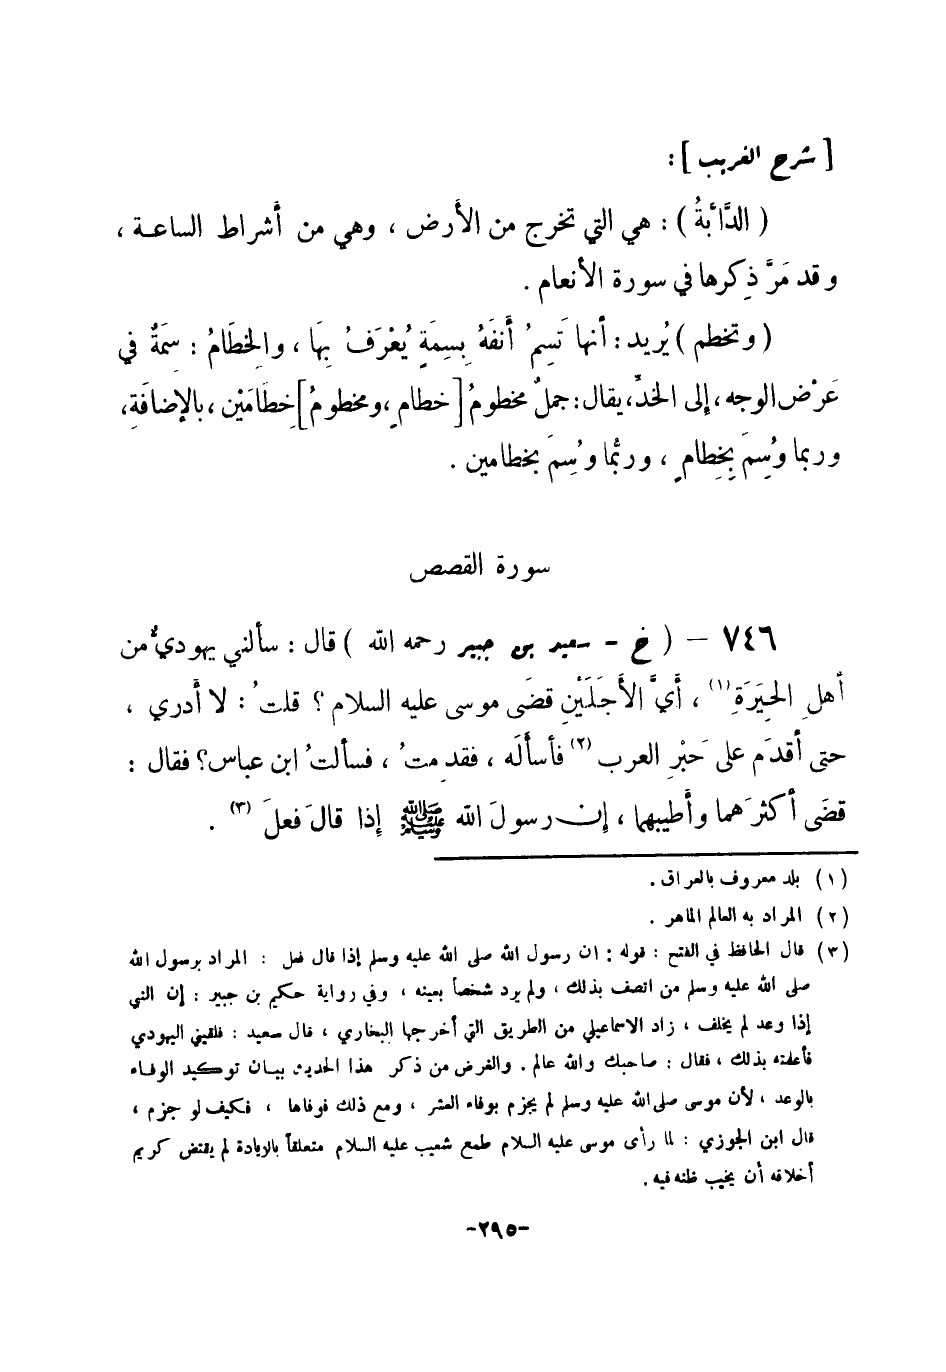 [ شرح الغريب ] :
( الدَّابَّةُ ) : هي التي تخرج من الأَرض ، وهي من أَشراط الساعـة ،
وقد مَرَّ ذِكرها في سورة الأنعام .
( وتخطم ) يُريد : أنها تَسِمُ أَنفَهُ بِسِمَةٍ يُعْرَفُ بِهَا ، والخِطَامُ : سِمَةٌ في
عَرْض الوجه ، إلى الخدِّ ، يقال : جملٌ مخطومُ [ خطامٍ ، ومخطومُ ] خِطَامَيْن ، بالإضافَةِ ،
وربما وُسِمَ بِخِطامٍ ، وربَّما وُسِمَ بخطامين .
سورة القصص
٧٤٦ – ( خ – سعيد بن جبير رحمه الله ) قال : سألني يهوديٌّ من
أهلِ الحِيَرَةِ (١) ، أَيَّ الأَجَلَيْنِ قضَى موسى عليه السلام ؟ قلتُ : لا أَدري ،
حتى أقدَم على حَبْرِ العرب (٢) فأسأَله ، فقدِمتُ ، فسألتُ ابن عباس؟ فقال :
قضَى أكثرَهما وأَطيبهما ، إن رسولَ الله ﷺ إذا قالَ فعلَ (٣) .
(١) بلد معروف بالعراق .
(٢) المراد به العالم الماهر .
(٣) قال الحافظ في الفتح : قوله : ان رسول الله صلى الله عليه وسلم إذا قال فعل : المراد برسول الله
صلى الله عليه وسلم من اتصف بذلك ، ولم يرد شخصاً بعينه ، وفي رواية حكيم بن جبير : إن النبي
إذا وعد لم يخلف ، زاد الاسماعيلي من الطريق التي أخرجها البخاري ، قال سعيد : فلقيني اليهودي
فأعلمته بذلك ، فقال : صاحبك والله عالم . والغرض من ذكر هذا الحديث بيـان توكيد الوفـاء
بالوعد ، لأن موسى صلى الله عليه وسلم لم يجزم بوفاء العشر ، ومع ذلك فوفاها ، فكيف لو جزم ،
قال ابن الجوزي : لما رأى موسى عليه السلام طمع شعيب عليه السلام متعلقاً بالزيادة لم يقتض كريم
أخلاقه أن يخيب ظنه فيه .
-٢٩٥-